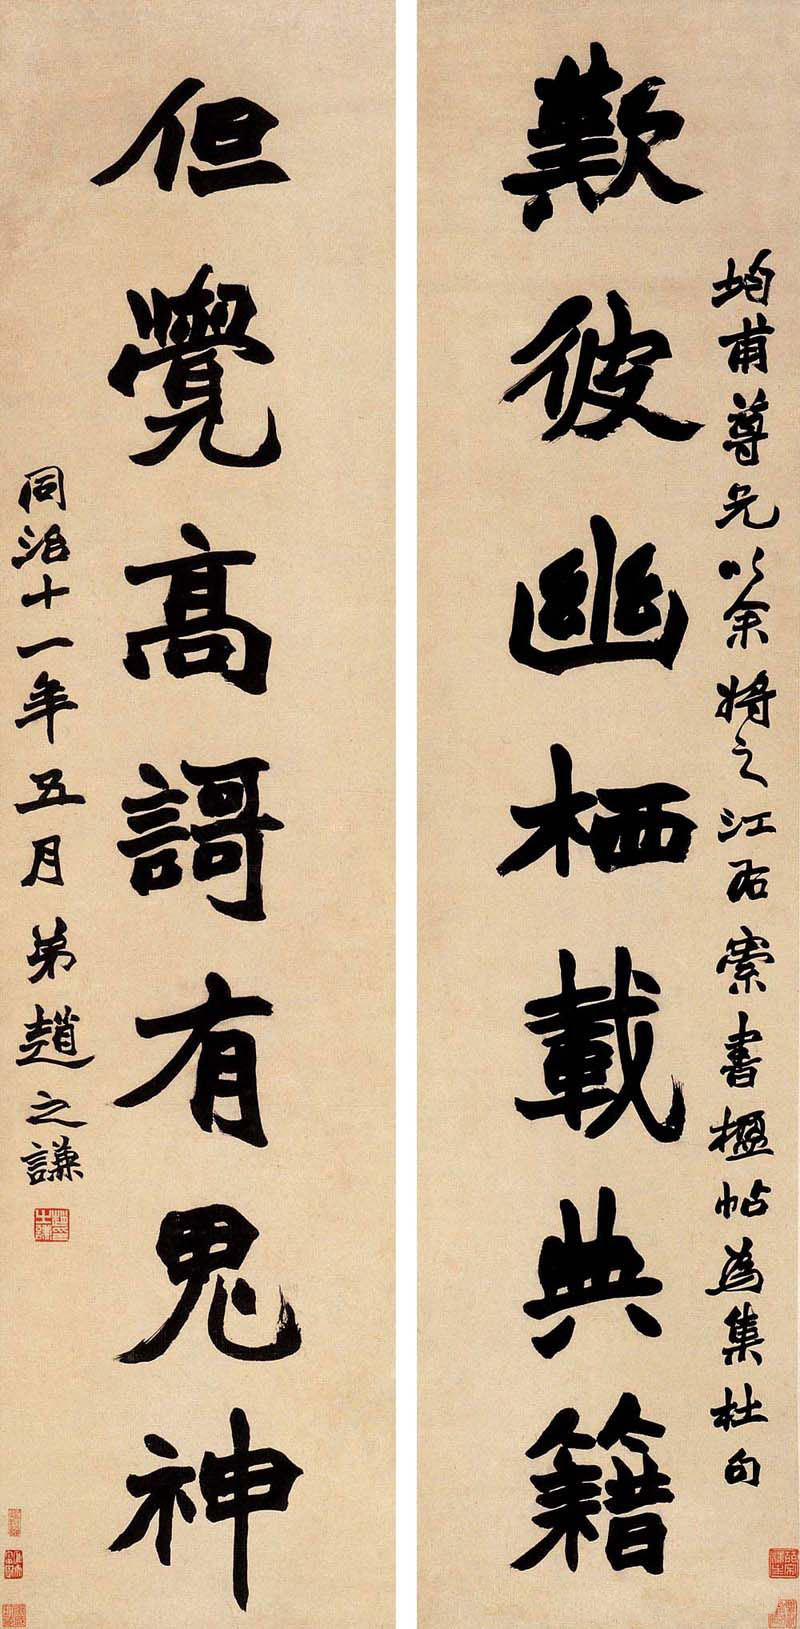 均甫尊兄以余将之江右索書楹帖為集杜句
歎彼幽栖載典籍
但覺高謌有鬼神
同治十一年五月弟趙之謙